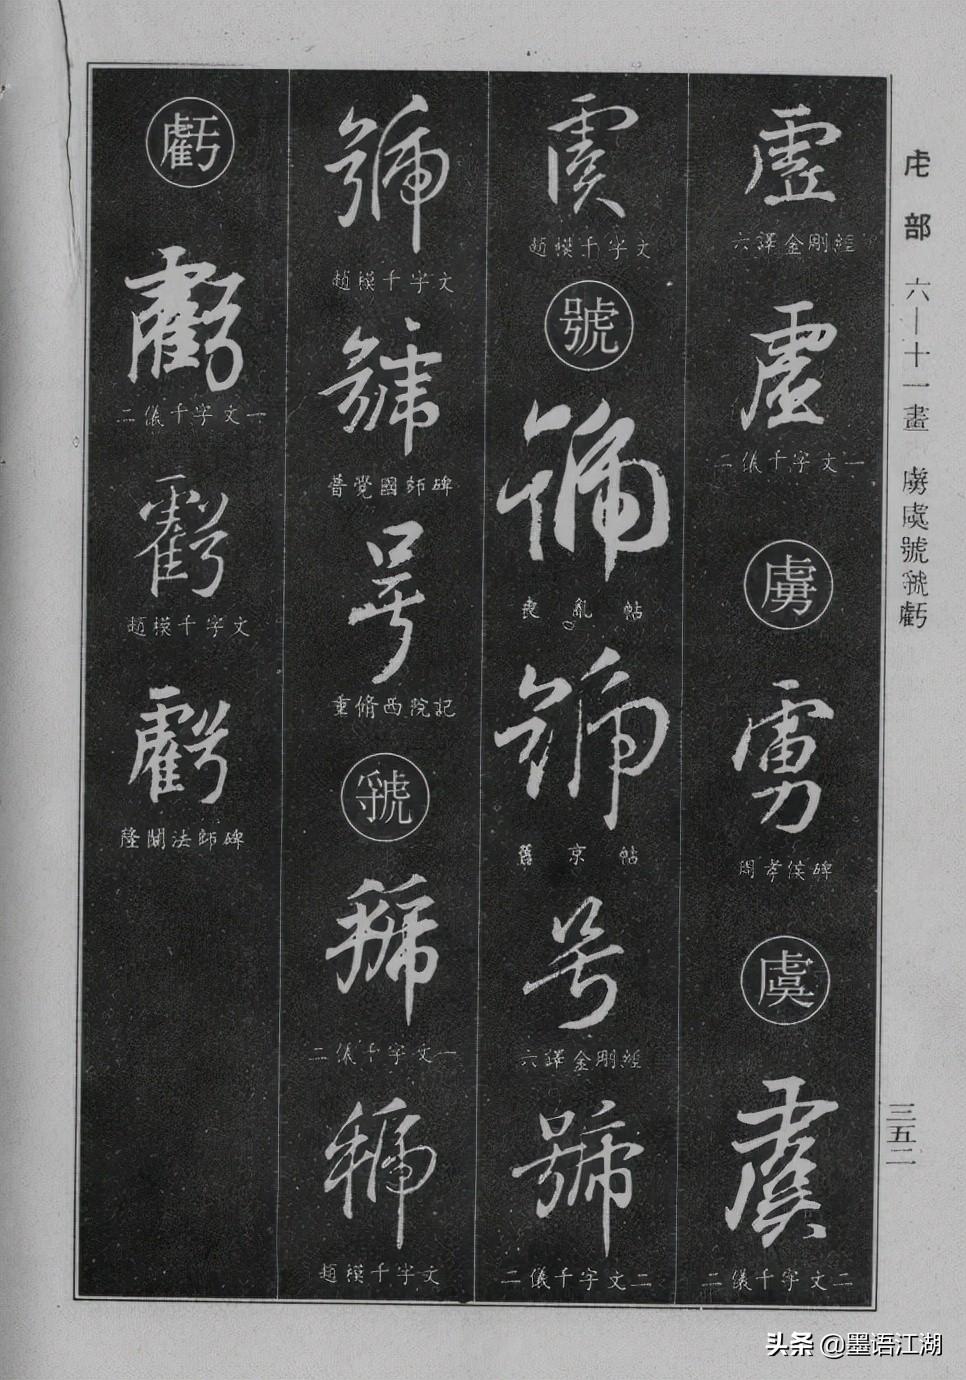 虍部 六—十一畫 虜虞號虢虧
三五二
虛
六譯金剛經
虛
二儀千字文一
虜
虜
周孝侯碑
虞
虞
二儀千字文二
虞
趙模千字文
號
號
喪亂帖
號
舊京帖
号
六譯金剛經
號
二儀千字文二
號
趙模千字文
號
普覺國師碑
号
重脩西院記
虢
虢
二儀千字文一
虢
趙模千字文
虧
虧
二儀千字文一
虧
趙模千字文
虧
隆闡法師碑
头条 @墨语江湖